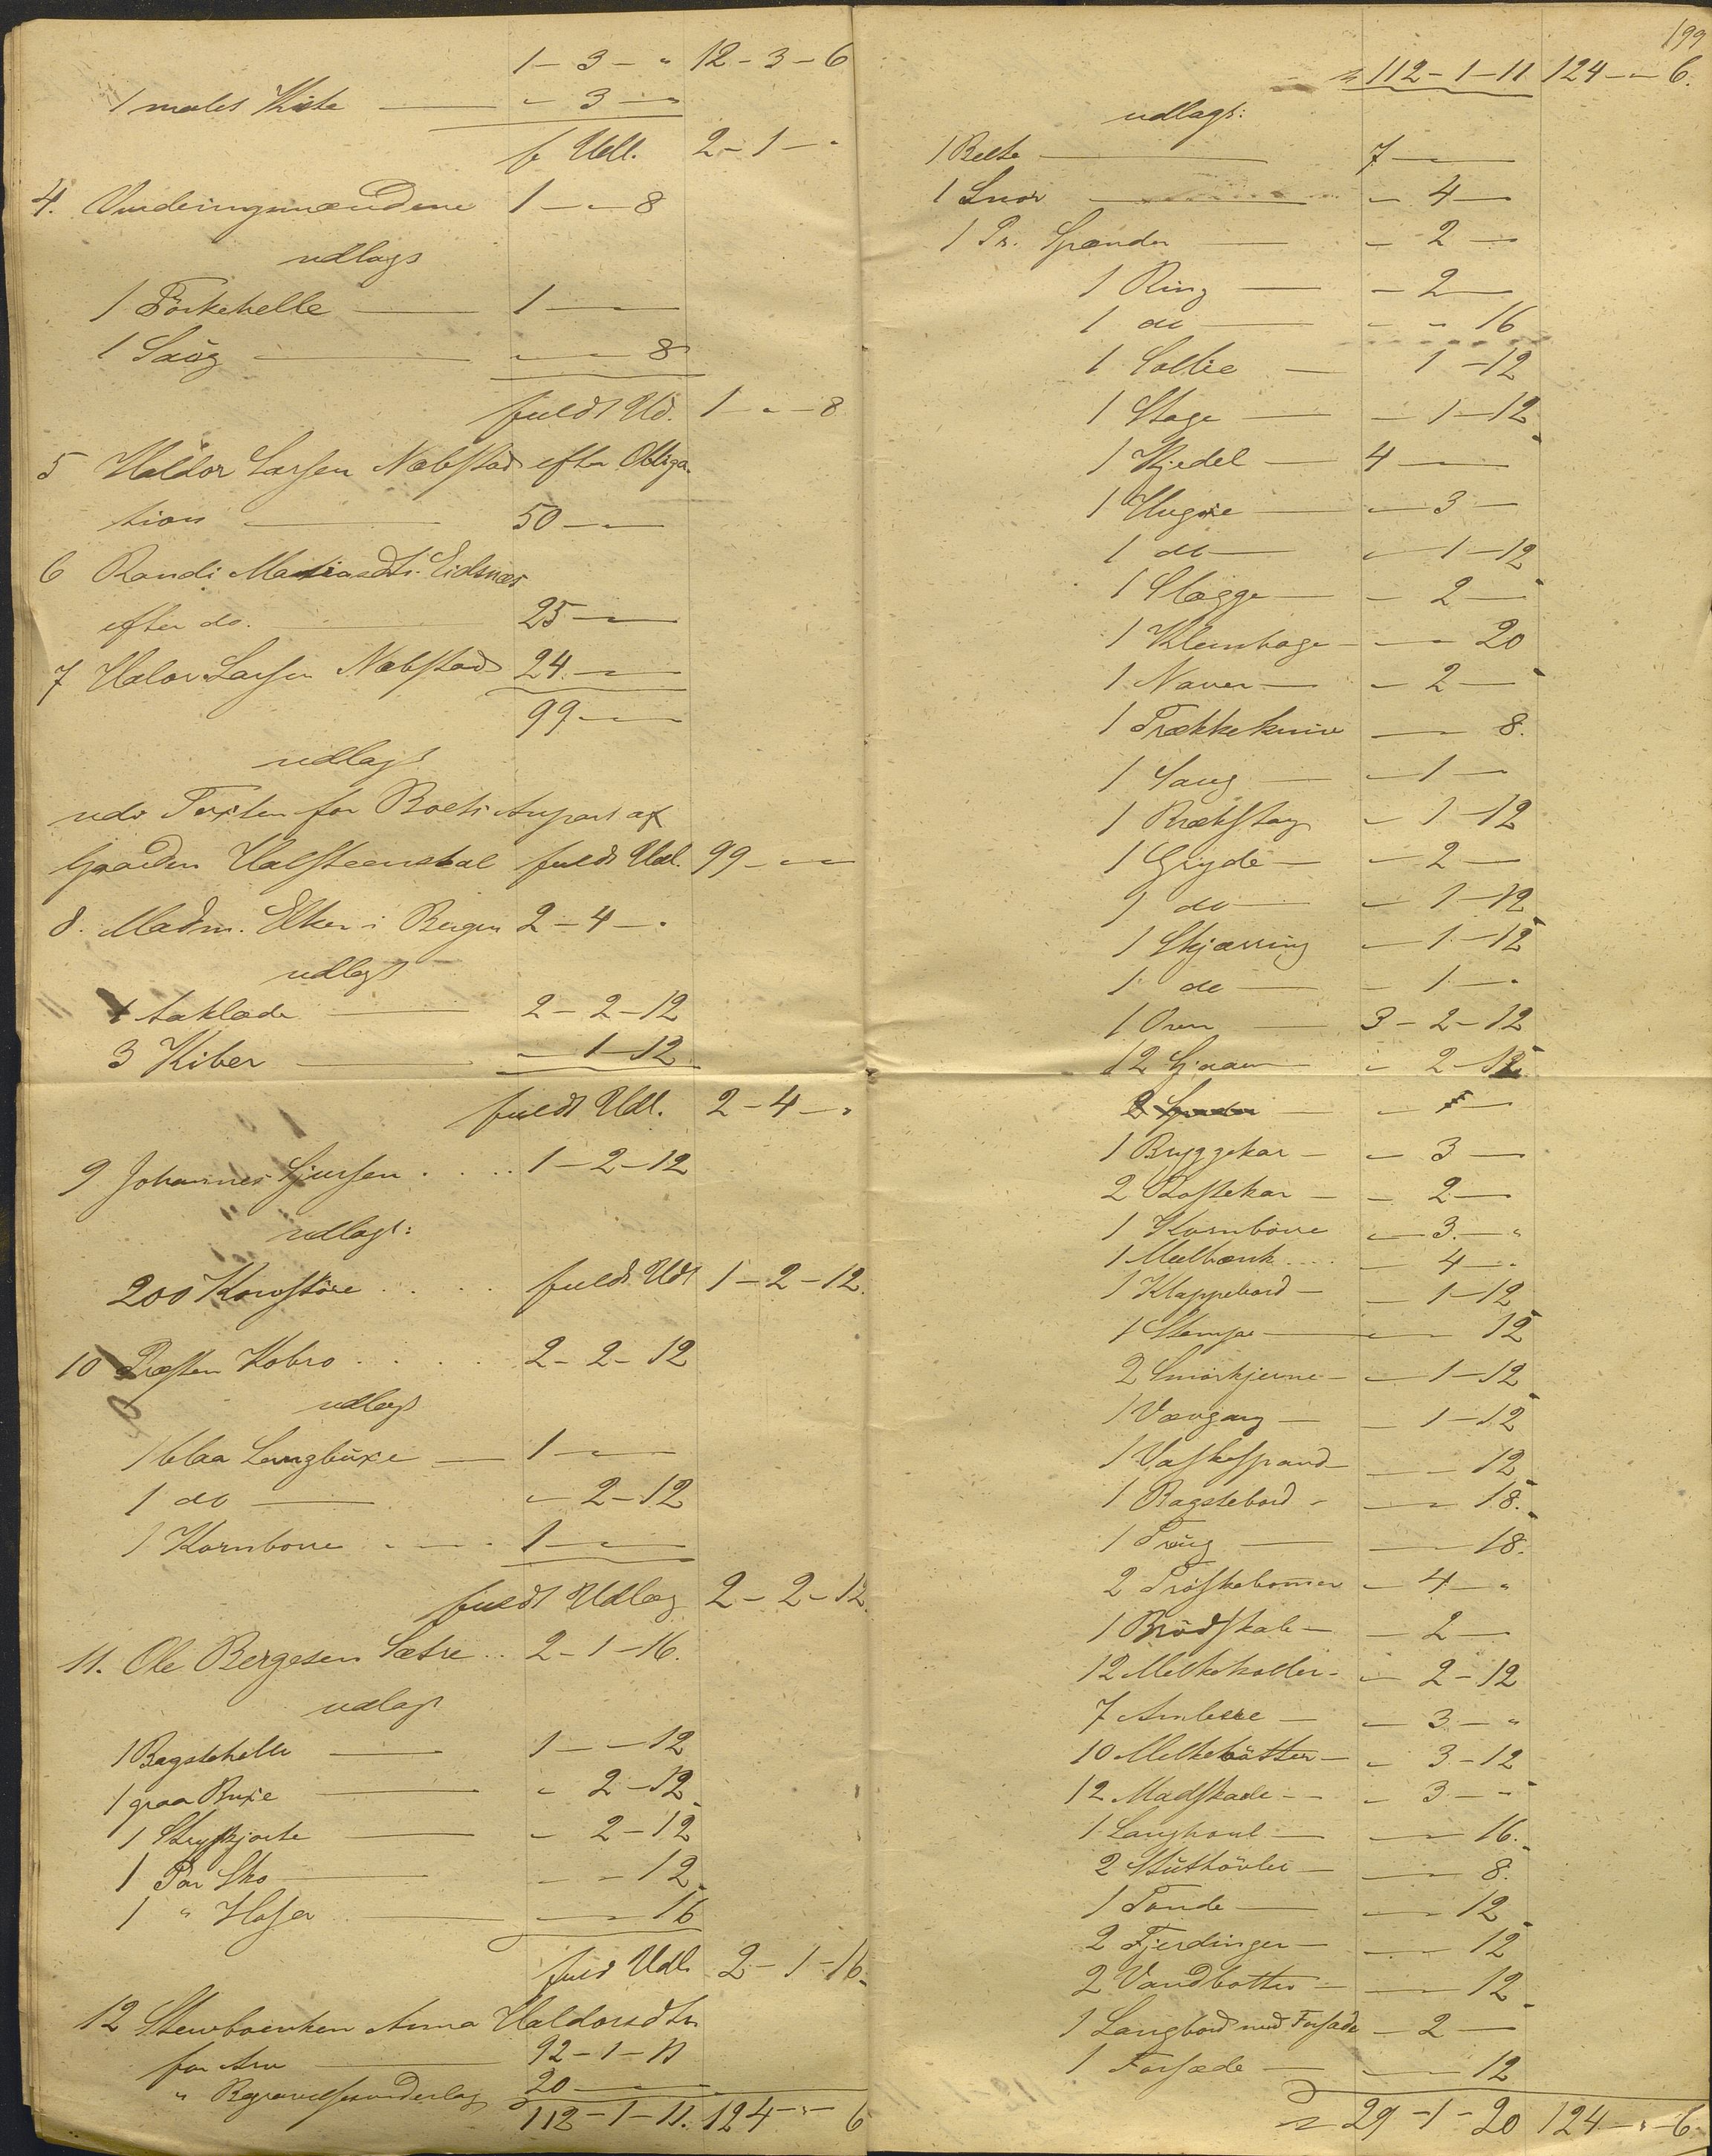 1 - 3 - " 12 - 3 - 6
1 malet Kiste - 3 - "
f Udl. 2 - 1 - "
4. Vurderingsmændene 1 - " - 8
udlagt
1 Förkehelle 1 - " - "
1 Saug " - " - 8
fuldt Ud. 1 - " - 8
5 Haldor Larsen Næbstad efter Obliga-
tion 50 - " - "
6 Randi Madiasdtr. Eidsnæs
efter do. 25 - " - "
7 Halor Larsen Næbstad 24 - " - "
99 - " - "
udlagt
udi Texten for Boets Anpart af
Gaarden Halsteensdal fuldt Udl. 99 - " - "
8. Madm. Elker i Bergen 2 - 4 - "
udlagt
1 Aaklæde 2 - 2 - 12
3 Kiber " - 1 - 12
fuldt Udl. 2 - 4 - "
9 Johannes Sjursen 1 - 2 - 12
udlagt:
200 Kornstöre fuldt Udl 1 - 2 - 12
10 Præsten Kobro 2 - 2 - 12
udlagt
1 blaa Langbuxe 1 - " - "
1 do " - 2 - 12
1 Kornbone 1 - " - "
fuldt Udlæg 2 - 2 - 12
11. Ole Bergesen Sætre 2 - 1 - 16.
udlagt
1 Bagstehelle 1 - " - 12
1 graa Buxe " - 2 - 12
1 Strykjorte " - 2 - 12
1 Par Sko " - " - 12
1 " Hoser " - " - 16
fuld Udl. 2 - 1 - 16
12 Stervboenken Anna Haldorsdtr
for Arv 92 - 1 - 11
" Begravelsesvederlag 20 - " - "
112 - 1 - 11. 124 - " - 6
199
112 - 1 - 11 124 - " - 6.
udlagt:
1 Belte 7 - " - "
1 Snor " - 4 - "
1 Pr. Spænder " - 2 - "
1 Ring " - 2 - "
1 do " - " - 16
1 Sollie 1 - 12
1 Stage " - 1 - 12
1 Kjedel 4 - " - "
1 Hugore " - 3 - "
1 do " - 1 - 12
1 Slægge " - 2 - "
1 Klemhage " - " - 20
1 Naver " - 2 - "
1 Trækkekniv " - " - 8.
1 Saug " - 1 - "
1 Brækstang " - 1 - 12
1 Gryde " - 2 - "
1 do " - 1 - 12
1 Skjærring " - 1 - 12
1 do " - 1 - "
1 Oven 3 - 2 - 12
12 " - 2 - 12
1 Bryggekar " - 3 - "
2 Rostekar " - 2 - "
1 Kornböne " - 3 - "
1 Meelbænk " - 4 - "
1 Klappebord " - 1 - 12
1 Stampe " - " - 12
2 Smörkjerne " - 1 - 12
1 Vævgang " - 1 - 12
1 Vaskespand " - " - 12
1 Bagstebord " - " - 18.
1 Traug " - " - 18.
2 Tröskebommer " - 4 - "
1 Brödskab " - 2 - "
12 Melkekoller " - 2 - 12
7 Ambere " - 3 - "
10 Melkebötter " - 3 - 12
12 Madskade " - 3 - "
1 Langhövl " - " - 16.
2 Stuthövler " - " - 8.
1 Tönde " - " - 12
2 Fjerdinger " - " - 12
2 Vandbötter " - " - 12
1 Langbord med Forsæde " - 2 - "
1 Forsæde " - " - 12
29 - 1 - 20 124 - " - 6.